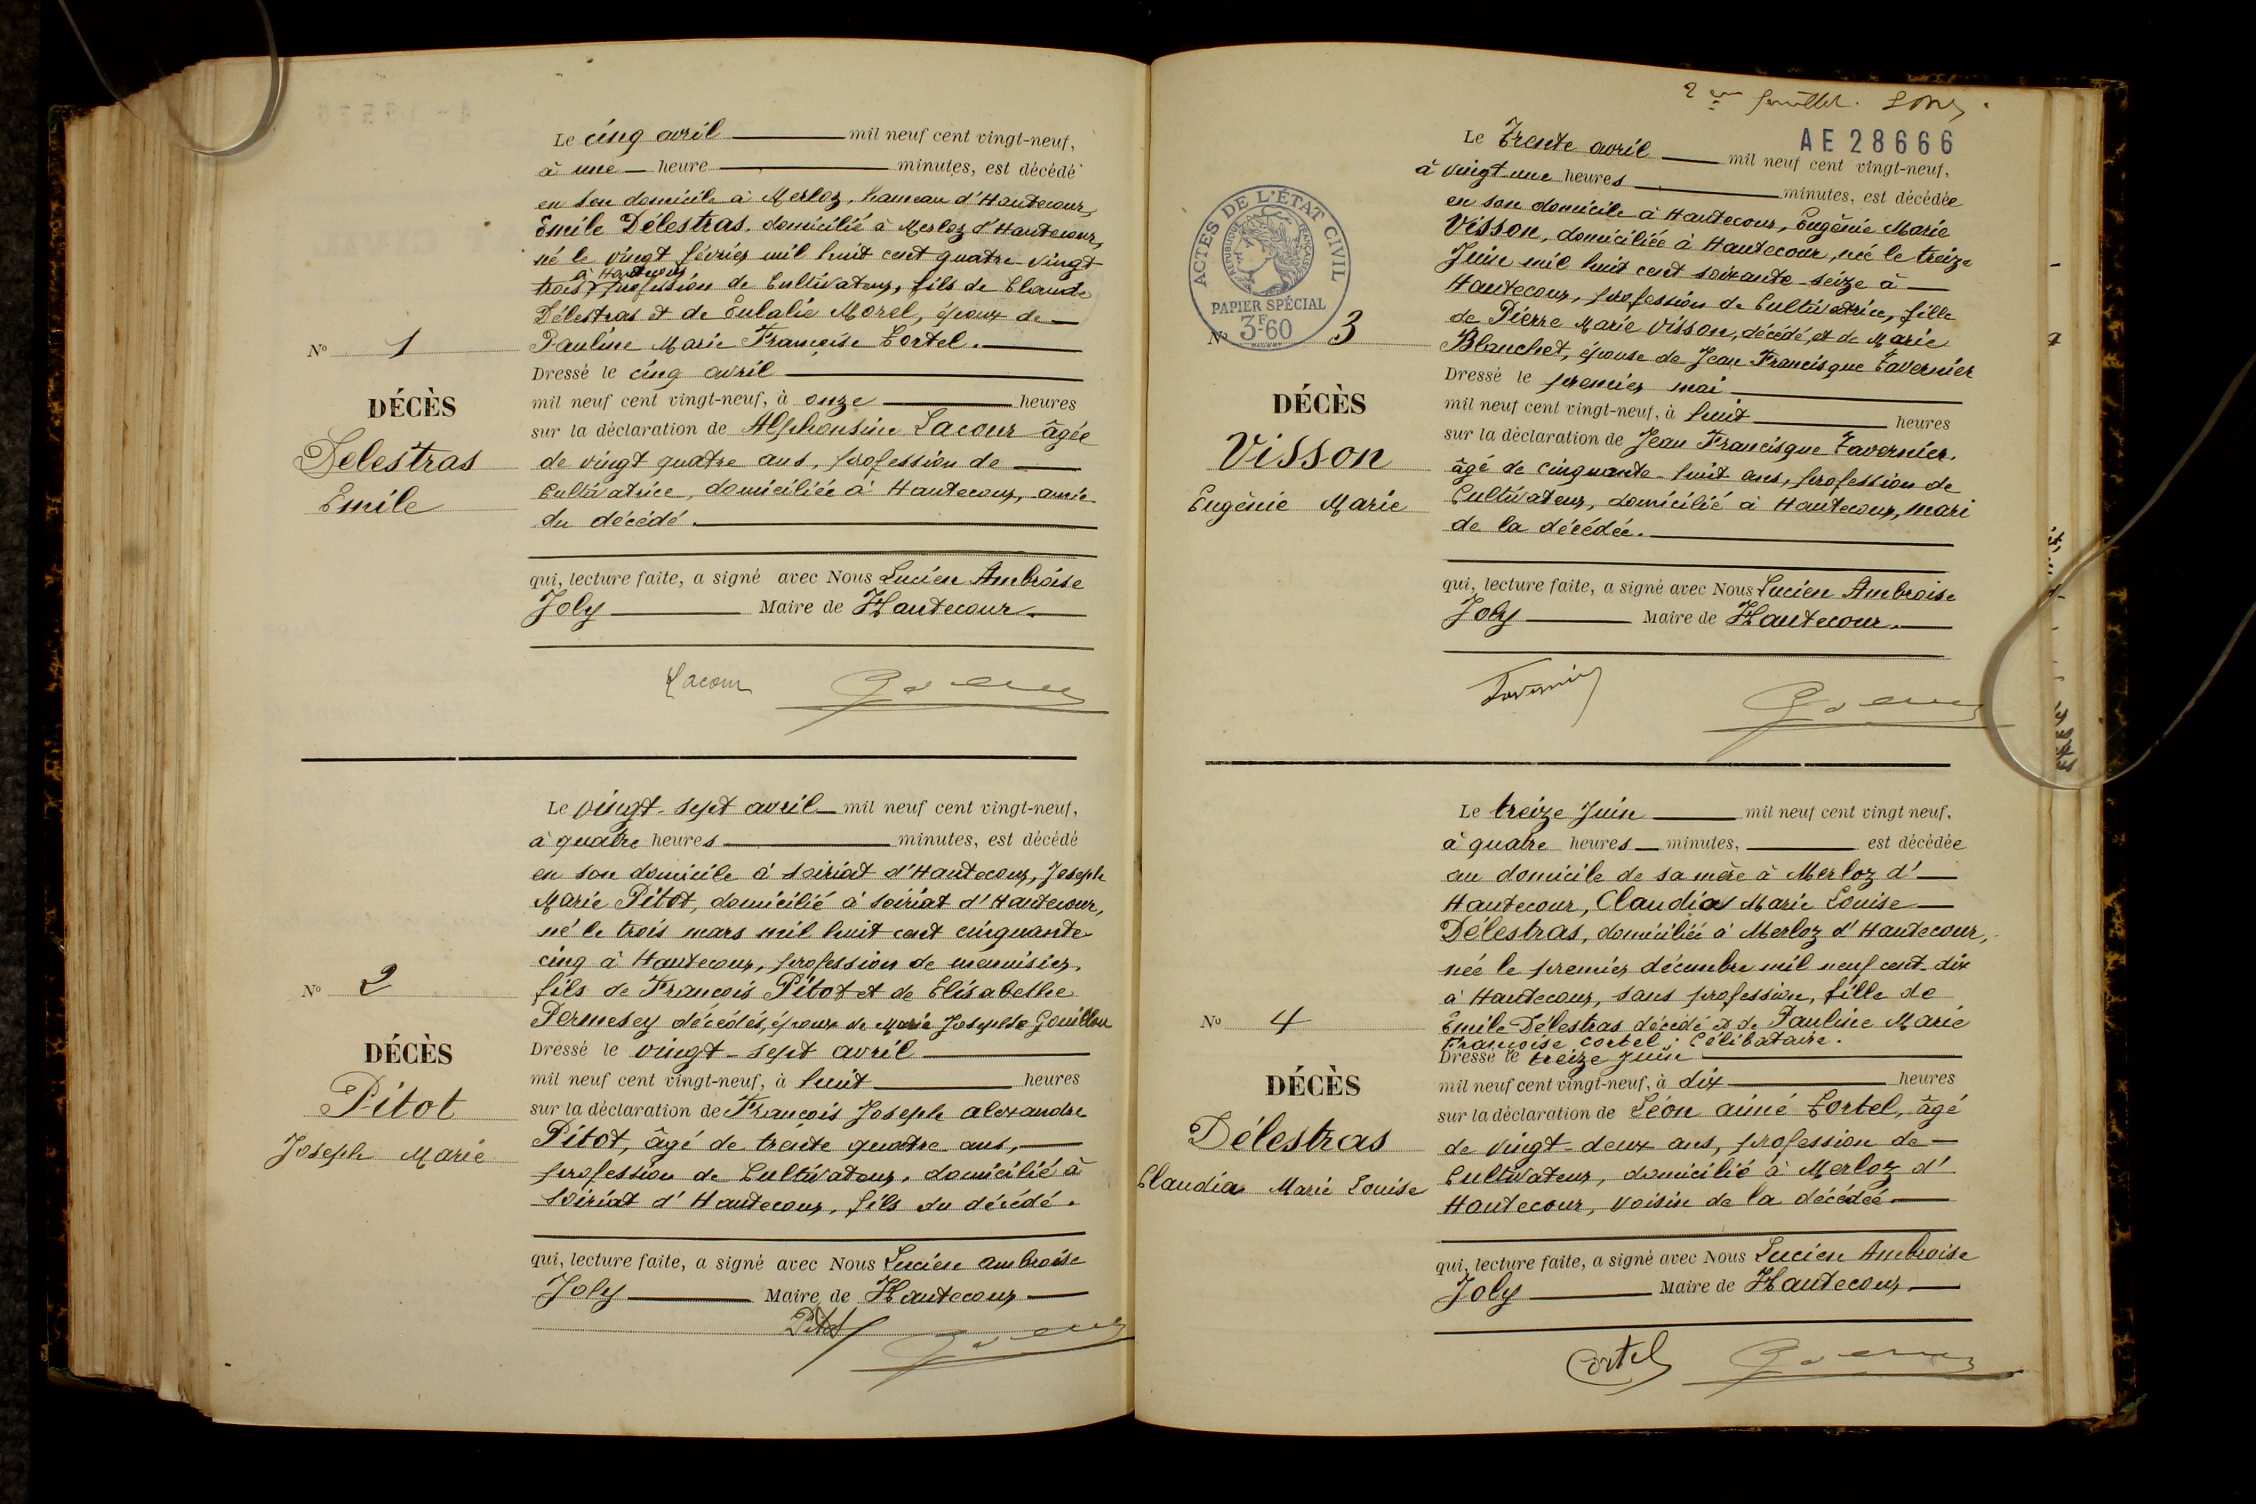 Le cinq avril mil neuf cent vingt-neuf,
à une heure minutes, est décédé
en son domicile à Merloz, hameau d'Hautecour,
Emile Délestras, domicilié à Merloz d'Hautecour,
né le vingt février mil huit cent quatre vingt
à Hautecour
trois, profession de Cultivateur, fils de Claude
Délestras et de Eulalie Morel, époux de
N° 1 Pauline Marie Françoise Cortel.
Dressé le cinq avril
DÉCÈS
mil neuf cent vingt-neuf, à onze heures
sur la déclaration de Alphonsine Lacour âgée
Delestras
de vingt quatre ans, profession de
Emile
Cultivatrice, domiciliée à Hautecour, amie
du décédé.
qui, lecture faite, a signé avec Nous Lucien Ambroise
Joly Maire de Hautecour.
Lacour
Le vingt-sept avril mil neuf cent vingt-neuf,
à quatre heures minutes, est décédé
en son domicile à Soiriat d'Hautecour, Joseph
Marie Pitot, domicilié à Soiriat d'Hautecour,
né le trois mars mil huit cent cinquante
cinq à Hautecour, profession de menuisier,
N° 2 fils de François Pitot et de Elisabethe
Permesey décédés, époux de Marie Josephte Gouillou
DÉCÈS
Dressé le vingt-sept avril
mil neuf cent vingt-neuf, à huit heures
Pitot
sur la déclaration de François Joseph alexandre
Pitot, âgé de trente quatre ans,
Joseph Marie
profession de Cultivateur, domicilié à
Soiriat d'Hautecour, fils du décédé.
qui, lecture faite, a signé avec Nous Lucien ambroise
Joly Maire de Hautecour
Pitot
2me feuillet.
AE 28666
Le Trente avril mil neuf cent vingt-neuf,
à vingt-une heures minutes, est décédée
en son domicile à Hautecour, Eugènie Marie
Visson, domiciliée à Hautecour, née le treize
Juin mil huit cent soixante-seize à
Hautecour, profession de Cultivatrice, fille
ACTES DE L'ÉTAT CIVIL
RÉPUBLIQUE FRANÇAISE
PAPIER SPÉCIAL
3F60
de Pierre Marie Visson, décédé, et de Marie
N° 3 Blanchet, épouse de Jean Francisque Tavernier
Dressé le premier mai
DÉCÈS
mil neuf cent vingt-neuf, à huit heures
sur la déclaration de Jean Francisque Tavernier.
Visson
âgé de cinquante-huit ans, profession de
Eugènie Marie
Cultivateur, domicilié à Hautecour, mari
de la décédée.
qui, lecture faite, a signé avec Nous Lucien Ambroise
Joly Maire de Hautecour.
Tavernier
Le treize Juin mil neuf cent vingt neuf,
à quatre heures minutes, est décédée
au domicile de sa mère à Merloz d'
Hautecour, Claudia Marie Louise
Délestras, domiciliée à Merloz d'Hautecour,
née le premier décembre mil neuf cent dix
à Hautecour, sans profession, fille de
N° 4 Emile Délestras décédé et de Pauline Marie
Françoise Cortel; Célibataire.
Dressé le treize Juin
DÉCÈS
mil neuf cent vingt-neuf, à dix heures
sur la déclaration de Léon aimé Cortel, âgé
Délestras
de vingt-deux ans, profession de
Claudia Marie Louise
Cultivateur, domicilié à Merloz d'
Hautecour, voisin de la décédée
qui, lecture faite, a signé avec Nous Lucien Ambroise
Joly Maire de Hautecour
Cortel